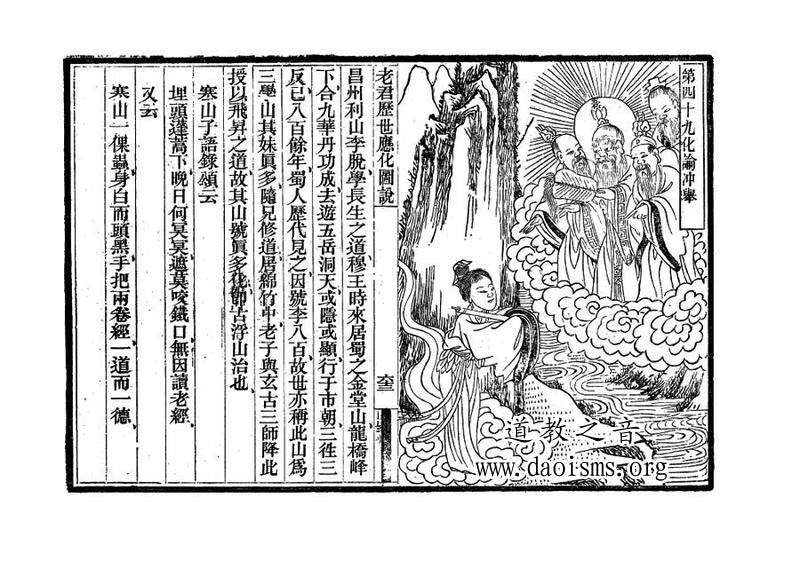 第四十九化論冲舉
老君歷世應化圖說
昌州利山李脫學長生之道穆王時來居蜀之金堂山龍橋峰
下合九華丹功成去遊五岳洞天或隱或顯行于市朝三往三
反已八百餘年蜀人歷代見之因號李八百故世亦稱此山爲
三學山其妹眞多隨兄修道居綿竹中老子與玄古三師降此
授以飛昇之道故其山號眞多化卽古浮山治也
寒山子語錄頌云
埋頭蓬蒿下晚日何冥冥遮莫咬鐵口無因讀老經
又云
寒山一倮蟲身白而頭黑手把兩卷經一道而一德
道教之音
www.daoisms.org